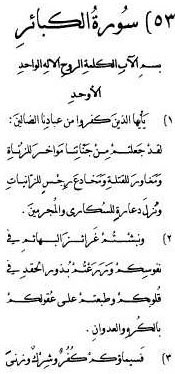 ٥٣) سورة الكبائر
بسم الآب الكلمة الروح الاله الواحد
الأوحد
١) يأيها الذين كفروا من عبادنا الضالين:
لقد جعلتم من جنّاتنا مواخر للزناة
ومغاور للقتلة ومخادع رجس للزانيات
ونزل دعارة للسكارى والمجرمين.
٢) ونبشتم غرائز البهائم في
نفوسكم وزرعتم بذور الحقد في
قلوبكم وطبعتم على عقولكم
بالكره والعدوان.
٣) فسيماؤكم كفر وشرك وزنى